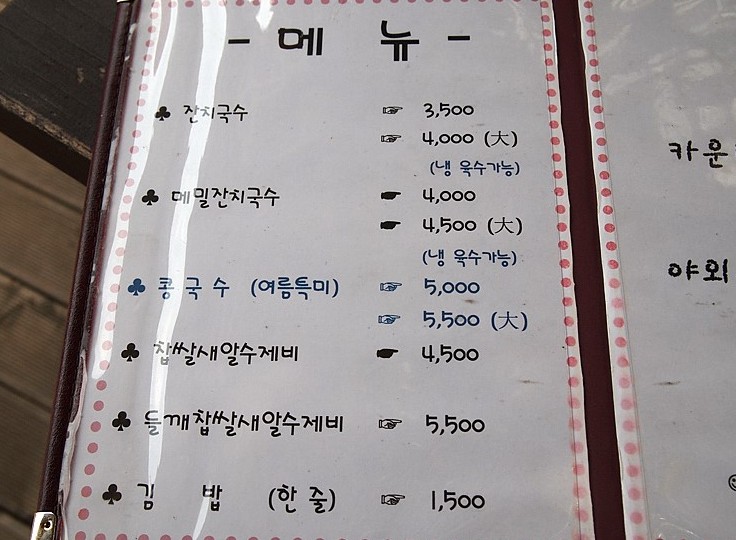 - 메 뉴 -
♣ 잔치국수 ☞ 3,500
☞ 4,000 (大)
(냉 육수가능)
♣ 메밀잔치국수 ☛ 4,000
☛ 4,500 (大)
(냉 육수가능)
♣ 콩국수 (여름특미) ☞ 5,000
☞ 5,500 (大)
♣ 찹쌀새알수제비 ☛ 4,500
♣ 들깨찹쌀새알수제비 ☞ 5,500
♣ 김 밥 (한 줄) ☞ 1,500
카운
야외